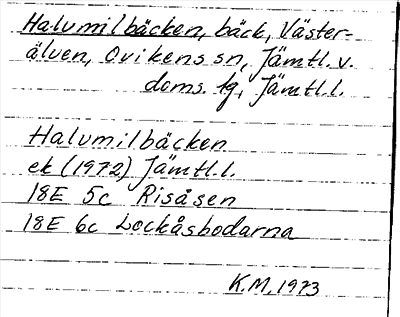 Halvmilbäcken, bäck, Väster-
älven, Ovikens sn, Jämtl. v.
doms. tg, Jämtl. l.
Halvmilbäcken
ek (1972) Jämtl. l.
18E 5c Risåsen
18E 6c Lockåsbodarna
K.M. 1973